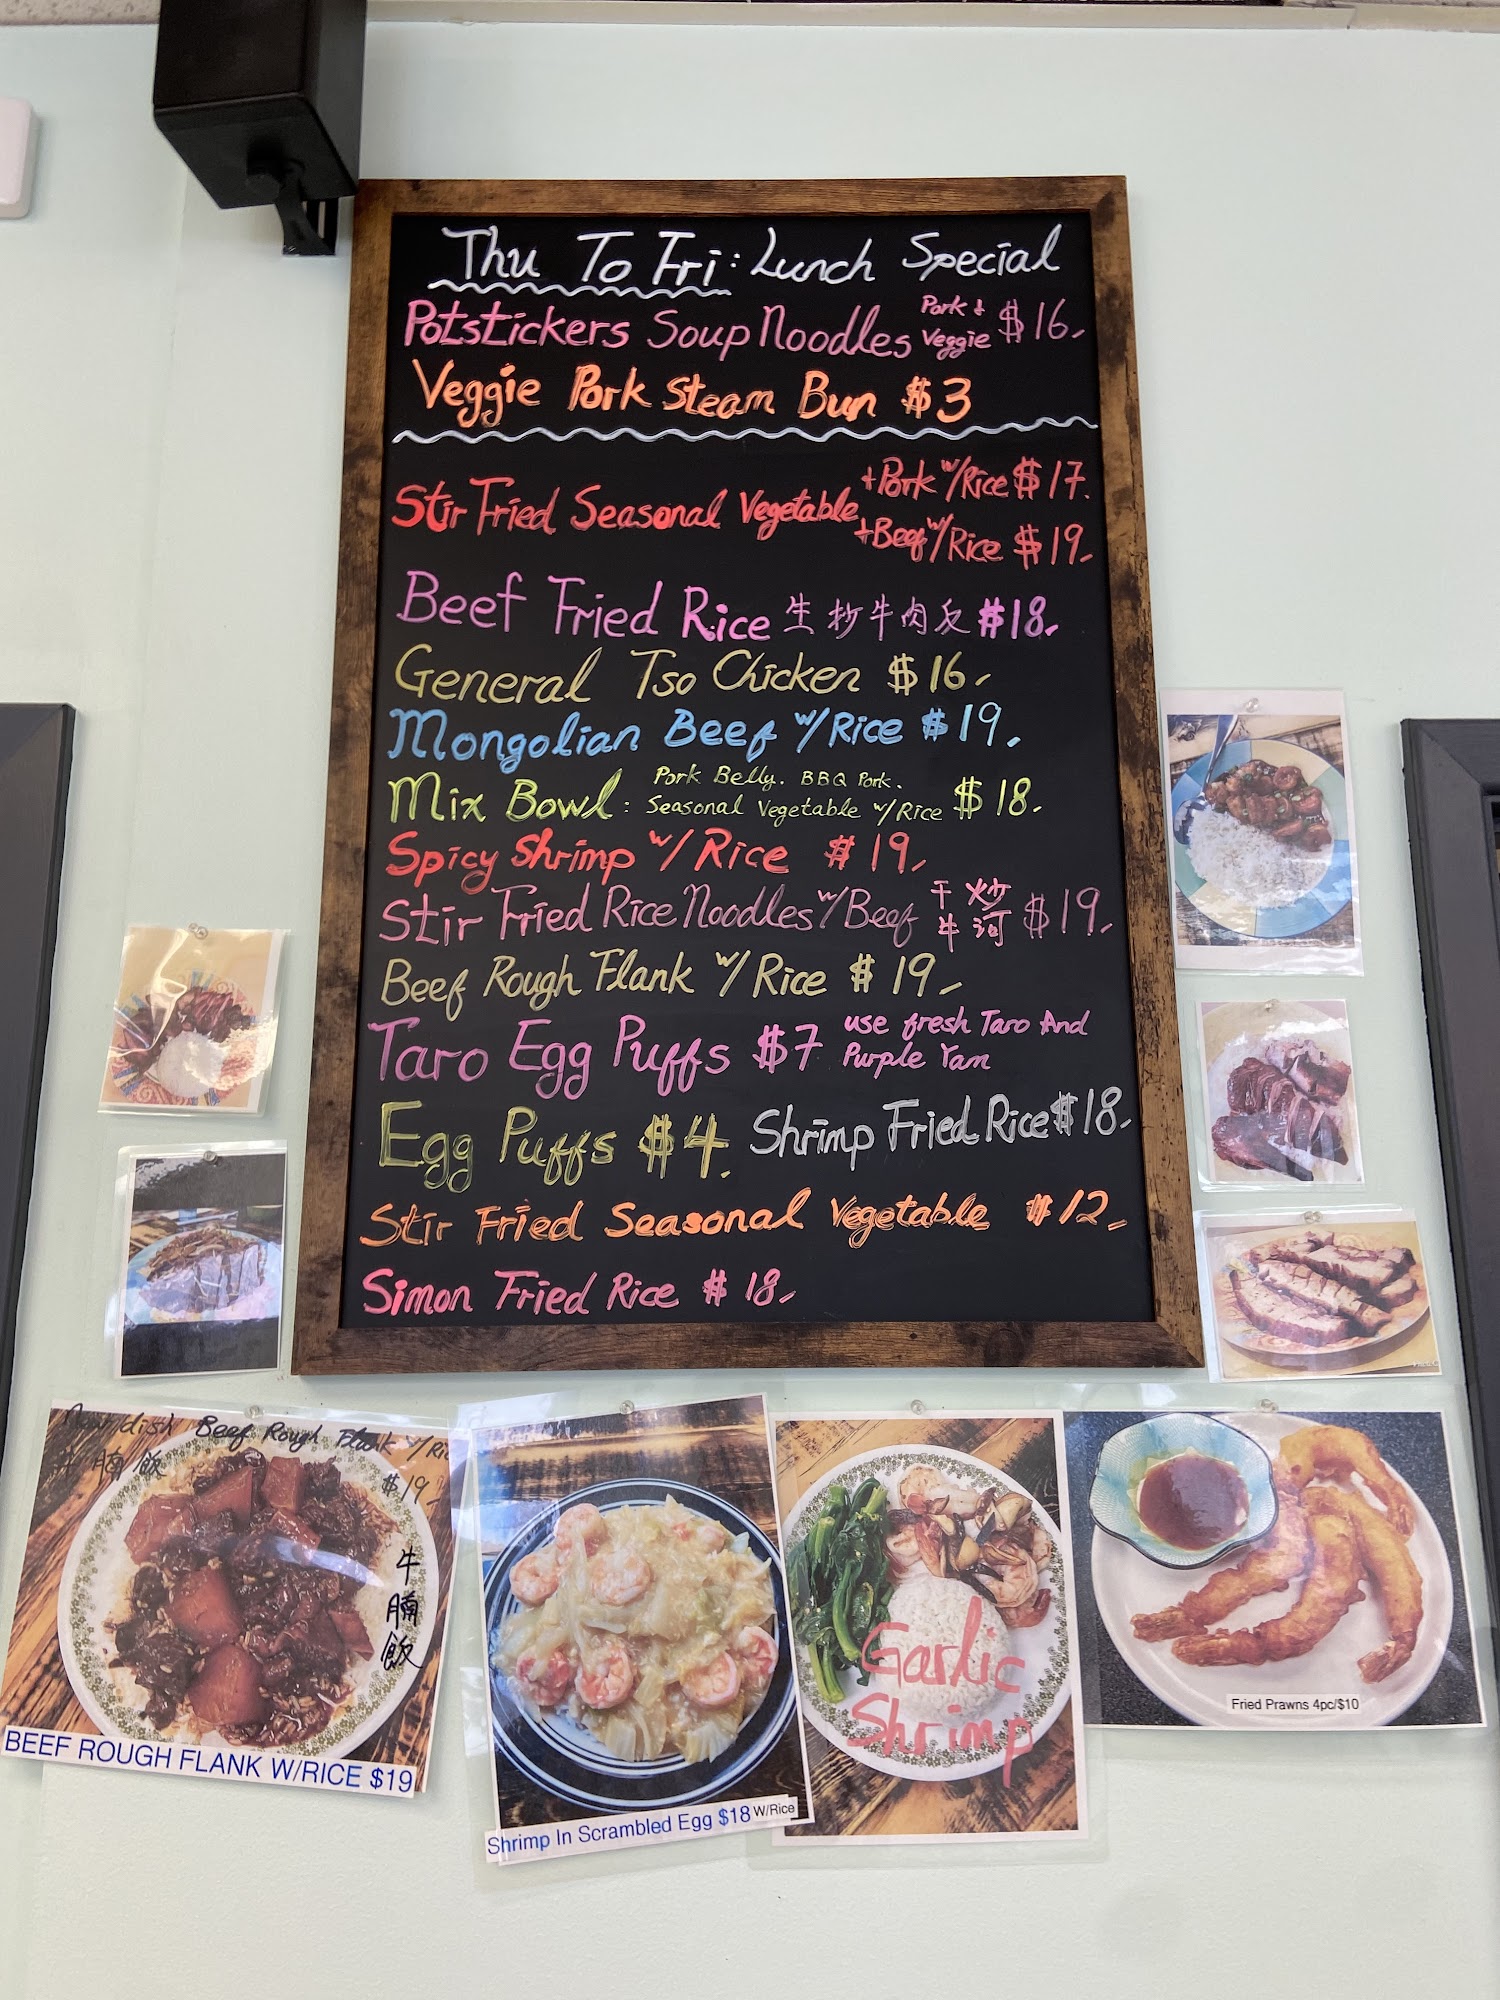 Thu To Fri: Lunch Special
Potstickers Soup Noodles Pork & Veggie $16.
Veggie Pork Steam Bun $3
Stir Fried Seasonal Vegetable +Pork w/Rice $17.
+Beef w/Rice $19.
Beef Fried Rice 生炒牛肉反 $18.
General Tso Chicken $16.
Mongolian Beef w/Rice $19.
Mix Bowl: Pork Belly. BBQ Pork. Seasonal Vegetable w/Rice $18.
Spicy Shrimp w/Rice $19.
Stir Fried Rice Noodles w/Beef 干炒牛河 $19.
Beef Rough Flank w/Rice $19.
Taro Egg Puffs $7 use fresh Taro And Purple Yam
Egg Puffs $4. Shrimp Fried Rice $18.
Stir Fried Seasonal Vegetable $12.
Simon Fried Rice $18.
New dish Beef Rough Flank w/Ric
牛腩飯
$19.
牛腩飯
BEEF ROUGH FLANK W/RICE $19
Shrimp In Scrambled Egg $18 W/Rice
Garlic
Shrimp
Fried Prawns 4pc/$10